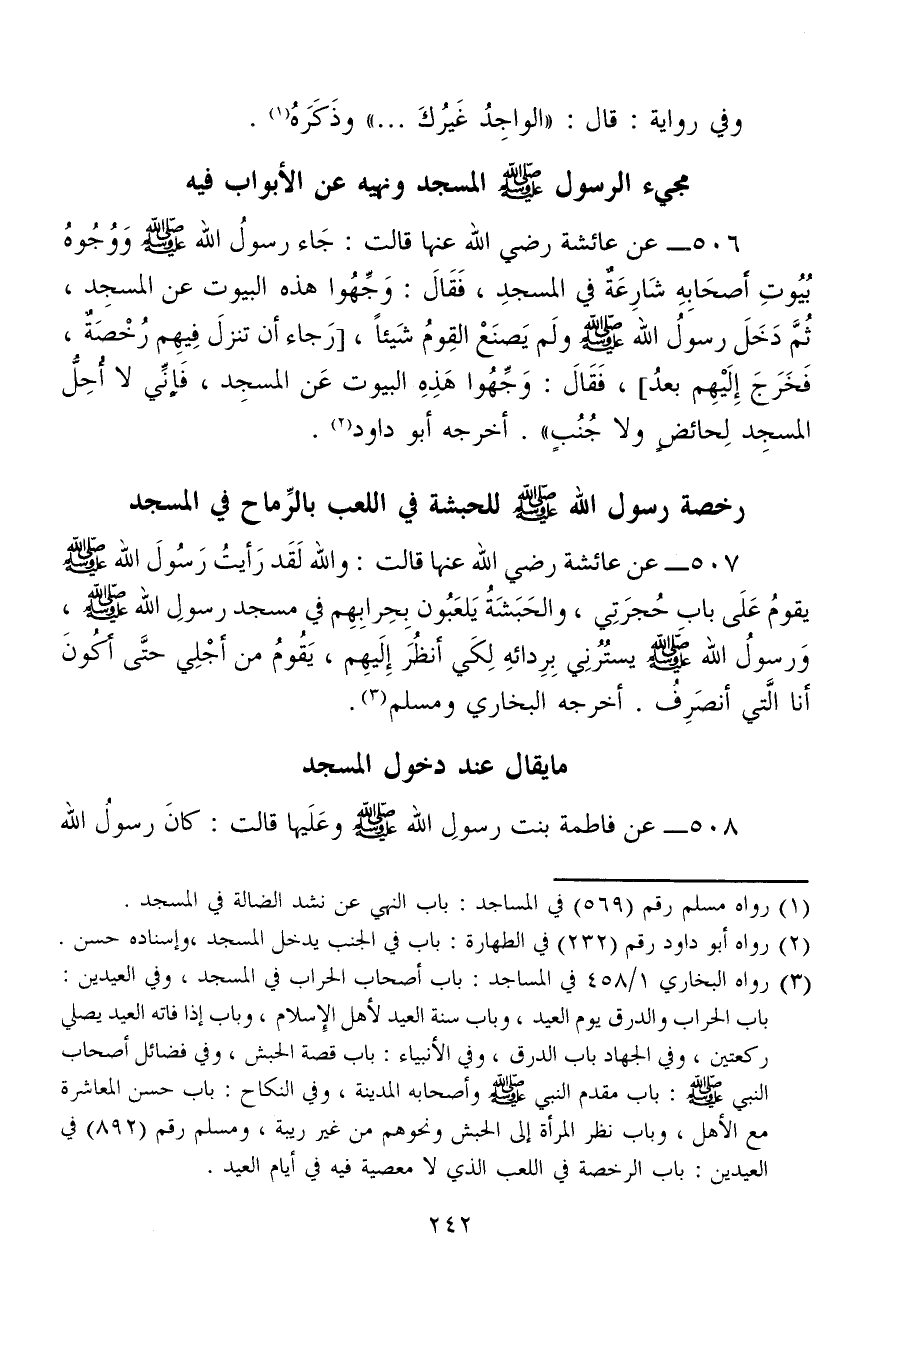 وفي رواية : قال : «الواجِدُ غَيرُكَ ...» وذَكَرَهُ(١) .
مجيء الرسول ﷺ المسجد ونهيه عن الأبواب فيه
٥٠٦ــ عن عائشة رضي الله عنها قالت : جَاء رسولُ الله ﷺ وَوُجُوهُ
بُيُوتِ أصحَابِهِ شَارِعَةٌ في المسجدِ ، فَقَالَ : وَجِّهُوا هذه البيوت عن المسجِد ،
ثُمَّ دَخَلَ رسولُ الله ﷺ ولَم يَصنَعْ القومُ شَيئاً ، [رَجاء أن تنزلَ فِيهِم رُخْصَةٌ ،
فَخَرَجَ إِلَيْهِم بعدُ] ، فَقَالَ : وَجِّهُوا هَذِهِ البيوت عَن المسجد ، فَإنِّي لا أُحِلُّ
المسجِد لِحائضٍ ولا جُنُبٍ» . أخرجه أبو داود(٢) .
رخصة رسول الله ﷺ للحبشة في اللعب بالرِّماح في المسجد
٥٠٧ــ عن عائشة رضي الله عنها قالت : والله لَقَد رَأيتُ رَسُولَ الله ﷺ
يقومُ عَلَى بابِ حُجرَتِي ، والحَبَشَةُ يَلعَبُون بِحِرابِهِم في مسجد رسولِ الله ﷺ ،
وَرسولُ الله ﷺ يستُرُنِي بِرِدائهِ لِكَي أنظُرَ إلَيهِم ، يَقُومُ من أجْلِي حتَّى أكُونَ
أنا الَّتي أنصَرِفُ . أخرجه البخاري ومسلم(٣).
مايقال عند دخول المسجد
٥٠٨ــ عن فاطمة بنت رسولِ الله ﷺ وعَلَيها قالت : كانَ رسولُ الله
(١) رواه مسلم رقم (٥٦٩) في المساجد : باب النهي عن نشد الضالة في المسجد .
(٢) رواه أبو داود رقم (٢٣٢) في الطهارة : باب في الجنب يدخل المسجد ،وإسناده حسن .
(٣) رواه البخاري ٤٥٨/١ في المساجد : باب أصحاب الحراب في المسجد ، وفي العيدين :
باب الحراب والدرق يوم العيد ، وباب سنة العيد لأهل الإسلام ، وباب إذا فاته العيد يصلي
ركعتين ، وفي الجهاد باب الدرق ، وفي الأنبياء : باب قصة الحبش ، وفي فضائل أصحاب
النبي ﷺ : باب مقدم النبي ﷺ وأصحابه المدينة ، وفي النكاح : باب حسن المعاشرة
مع الأهل ، وباب نظر المرأة إلى الحبش ونحوهم من غير ريبة ، ومسلم رقم (٨٩٢) في
العيدين : باب الرخصة في اللعب الذي لا معصية فيه في أيام العيد .
٢٤٢